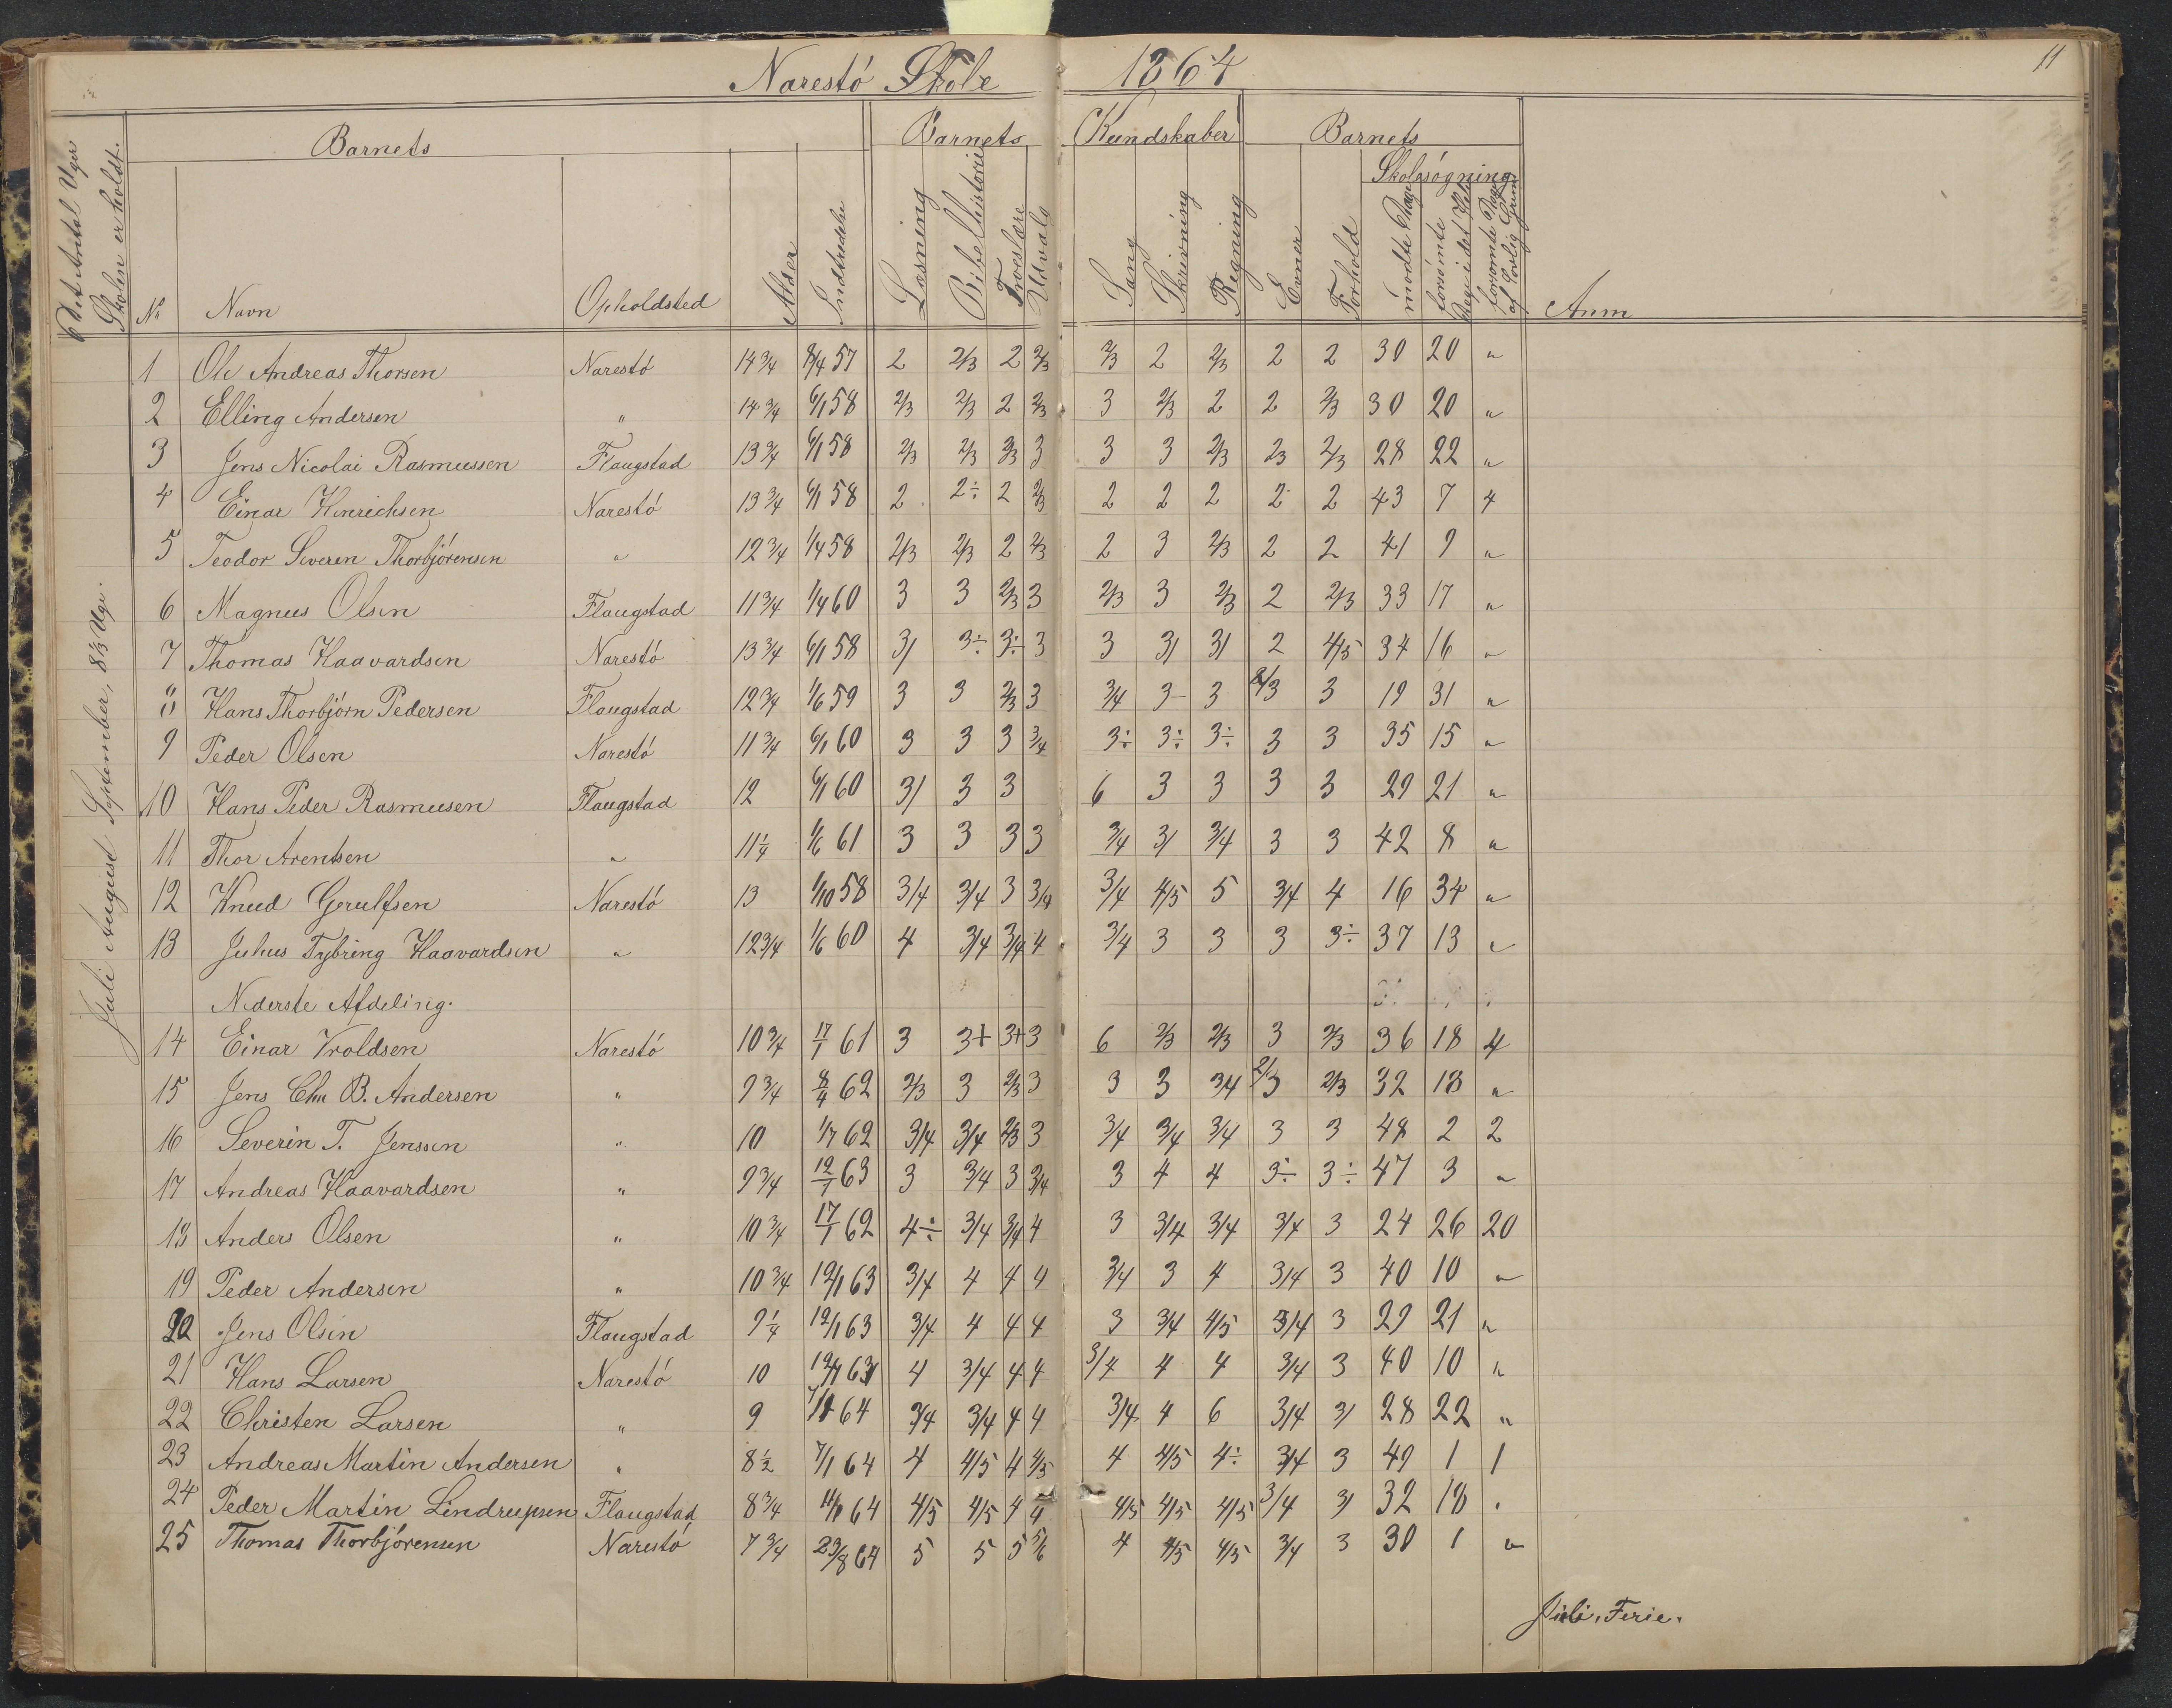 11
Narestó Skole 1864
Barnets Barnets Kundskaber Barnets
Skolesógning
Det Antal Uger Skolen er holdt.
No Navn Opholdsted Alder Indtrædelse Læsning Bibelhistorie Troeslære Udvalg Sang Skrivning Regning Evner Forhold mødte Dage forsømte Dage i det Hele forsømte Dage af lovlig Grund Anm
Juli August September, 8 1/3 Uge.
1 Ole Andreas Thorsen Narestó 14 3/4 8/4 57 2 2/3 2 2/3 2/3 2 2/3 2 2 30 20 "
2 Elling Andersen " 14 3/4 6/1 58 2/3 2/3 2 2/3 3 2/3 2 2 2/3 30 20 "
3 Jens Nicolai Rasmussen Flaugstad 13 3/4 6/1 58 2/3 2/3 2/3 3 3 3 2/3 2/3 2/3 28 22 "
4 Einar Henrichsen Narestó 13 3/4 6/1 58 2 2÷ 2 2/3 2 2 2 2 2 43 7 4
5 Teodor Severin Thorbjörensen " 12 3/4 1/4 58 2/3 2/3 2 2/3 2 3 2/3 2 2 41 9 "
6 Magnus Olsen Flaugstad 11 3/4 1/4 60 3 3 2/3 3 2/3 3 2/3 2 2/3 33 17 "
7 Thomas Haavardsen Narestó 13 3/4 6/1 58 3/ 3÷ 3÷ 3 3 3/ 3/ 2 4/5 34 16 "
8 Hans Thorbjórn Pedersen Flaugstad 12 3/4 1/6 59 3 3 2/3 3 3/4 3- 3 2/3 3 19 31 "
9 Peder Olsen Narestó 11 3/4 6/1 60 3 3 3 3/4 3÷ 3÷ 3÷ 3 3 35 15 "
10 Hans Peder Rasmusen Flaugstad 12 6/1 60 3/ 3 3 6 3 3 3 3 29 21 "
11 Thor Arentsen " 11 1/4 1/6 61 3 3 3 3 3/4 3/ 3/4 3 3 42 8 "
12 Knud Gerulfsen Narestó 13 1/10 58 3/4 3/4 3 3/4 3/4 4/5 5 3/4 4 16 34 "
13 Julius Tybring Haavardsen " 12 3/4 1/6 60 4 3/4 3/4 4 3/4 3 3 3 3÷ 37 13 "
Nederste Afdeling.
14 Einar Vroldsen Narestó 10 3/4 17/1 61 3 3+ 3+ 3 6 2/3 2/3 3 2/3 36 18 4
15 Jens Chr B. Andersen " 9 3/4 8/4 62 2/3 3 2/3 3 3 3 3/4 2/3 2/3 32 18 "
16 Severin T. Jenssen " 10 1/7 62 3/4 3/4 2/3 3 3/4 3/4 3/4 3 3 48 2 2
17 Andreas Haavardsen " 9 3/4 12/1 63 3 3/4 3 3/4 3 4 4 3÷ 3÷ 47 3 "
18 Anders Olsen " 10 3/4 17/1 62 4÷ 3/4 3/4 4 3 3/4 3/4 3/4 3 24 26 20
19 Peder Andersen " 10 3/4 12/1 63 3/4 4 4 4 3/4 3 4 3/4 3 40 10 "
20 Jens Olsen Flaugstad 9 1/4 12/1 63 3/4 4 4 4 3 3/4 4/5 3/4 3 29 21 "
21 Hans Larsen Narestó 10 12/1 63 4 3/4 4 4 3/4 4 4 3/4 3 40 10 "
22 Christen Larsen " 9 7/1 64 3/4 3/4 4 4 3/4 4 6 3/4 3/ 28 22 "
23 Andreas Martin Andersen " 8 1/2 7/1 64 4 4/5 4 4/5 4 4/5 4÷ 3/4 3 49 1 1
24 Peder Martin Lindrupsen Flaugstad 8 3/4 11/1 64 4/5 4/5 4 4 4/5 4/5 4/5 3/4 3/ 32 18 "
25 Thomas Thorbjórensen Narestó 7 3/4 23/8 64 5 5 5 5/6 4 4/5 4/5 3/4 3 30 1 "
Juli. Ferie.